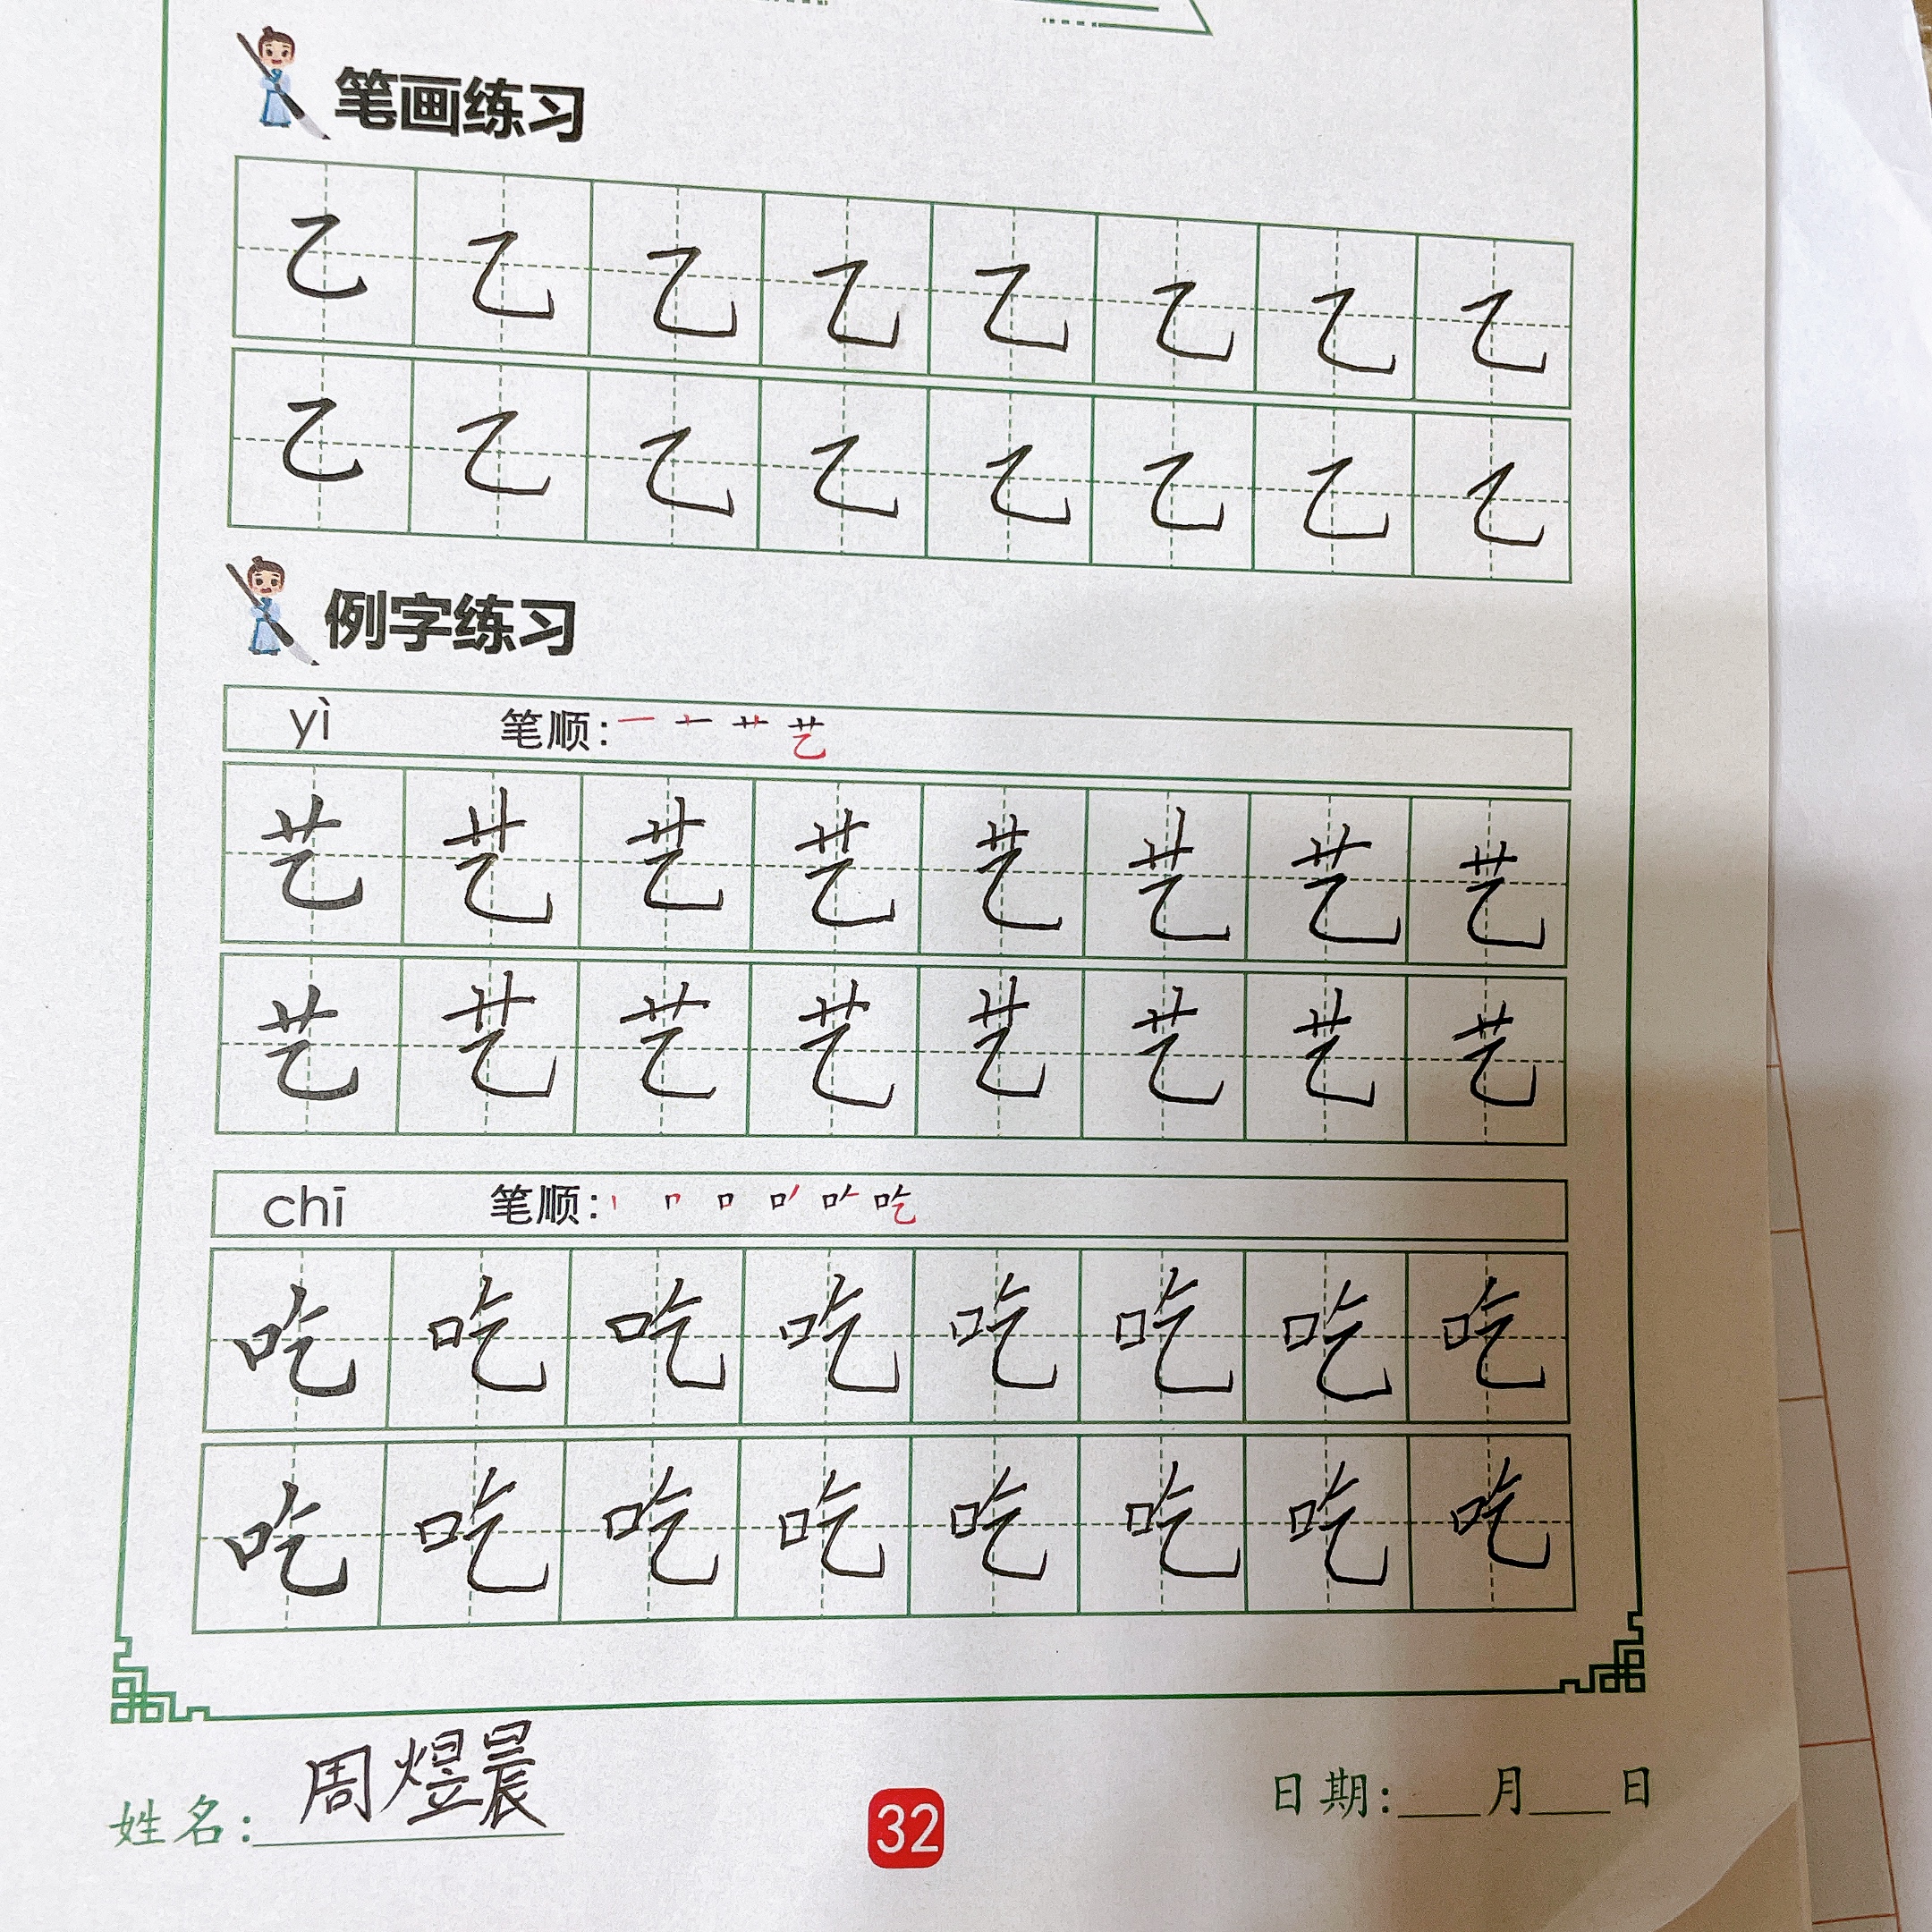 笔画练习
乙 乙 乙 乙 乙 乙 乙 乙
乙 乙 乙 乙 乙 乙 乙 乙
例字练习
yì 笔顺: 艺
艺 艺 艺 艺 艺 艺 艺 艺
艺 艺 艺 艺 艺 艺 艺 艺
chī 笔顺: 丨 口 吃
吃 吃 吃 吃 吃 吃 吃 吃
吃 吃 吃 吃 吃 吃 吃 吃
姓名: 周煜晨
32
日期:___月___日